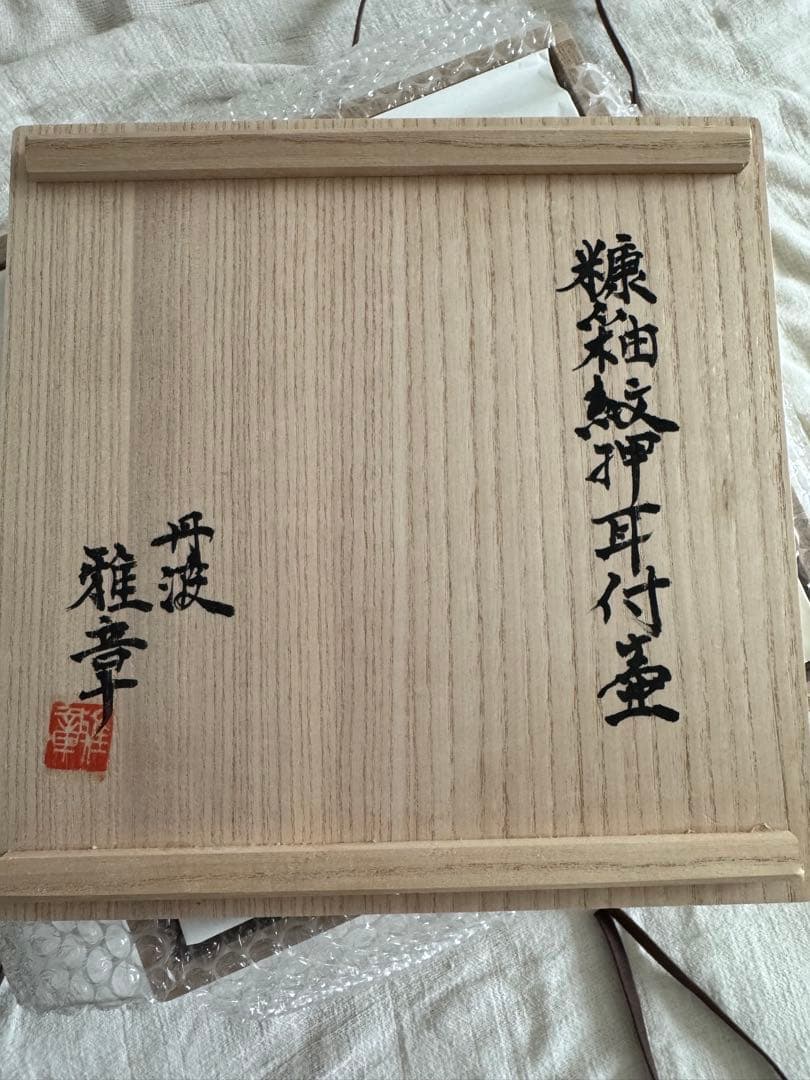 糠釉紋押耳付壷
丹波
雅章
雅章